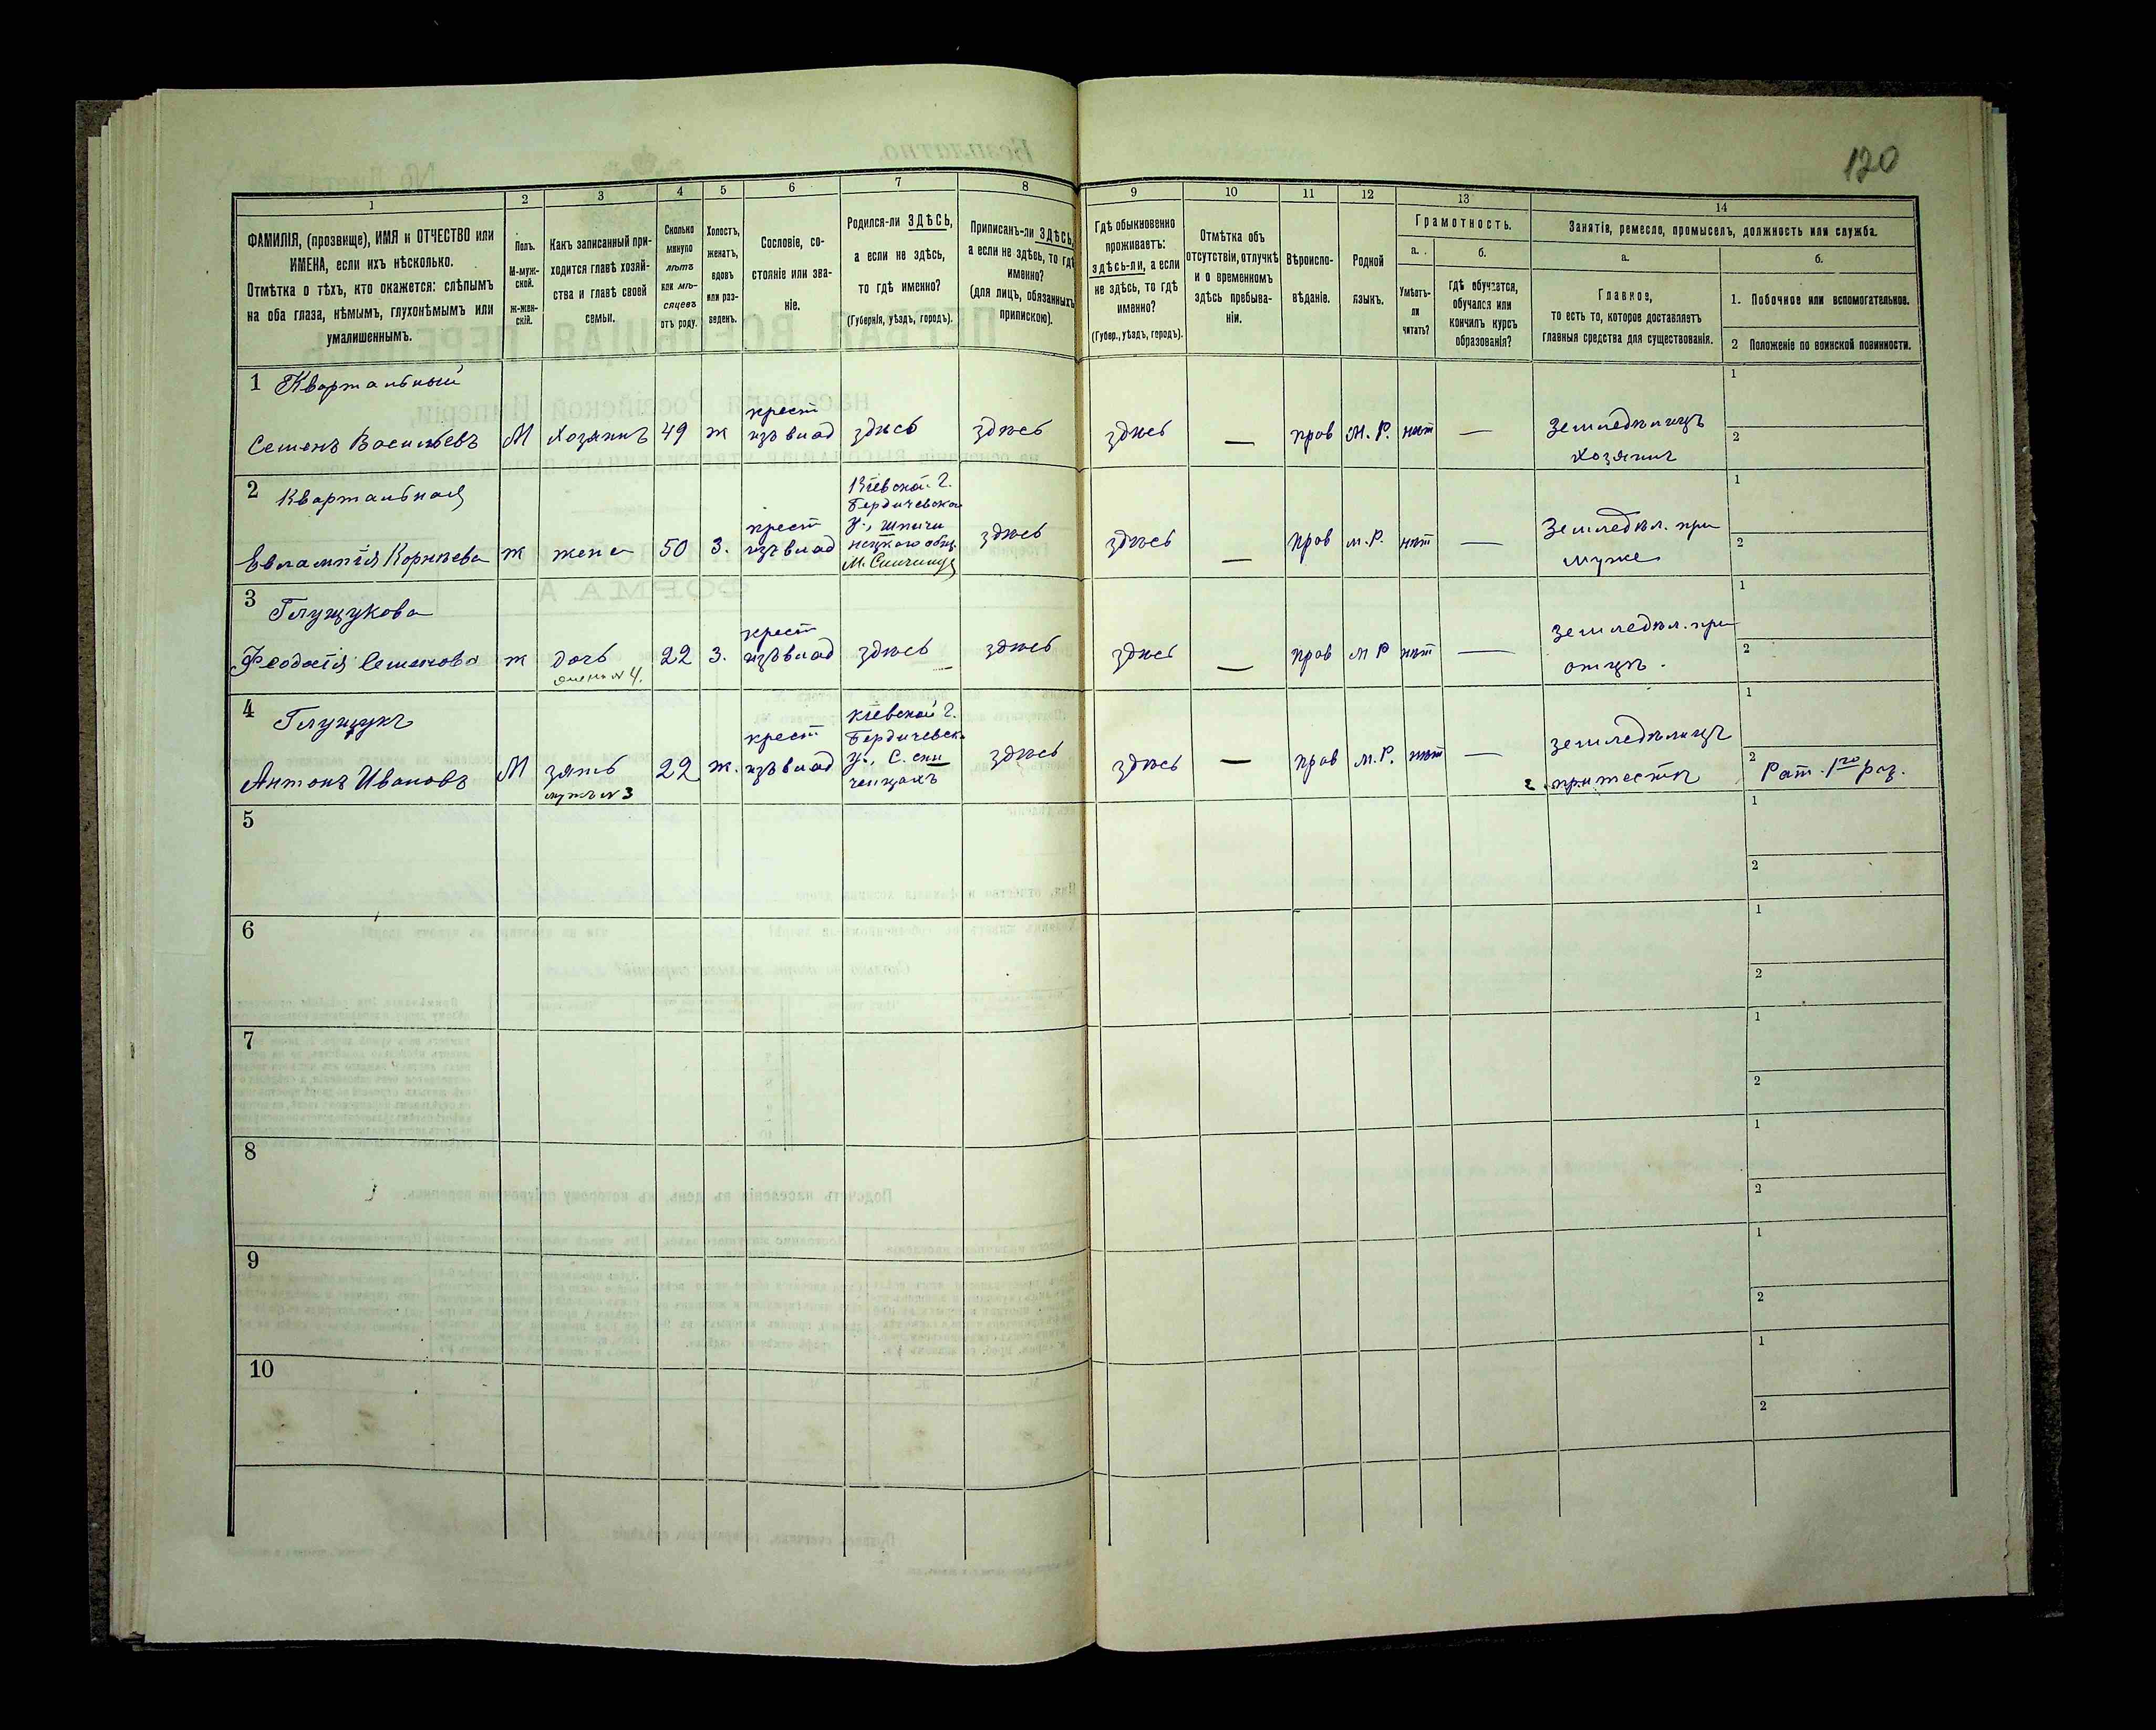 120
1
2
3
4
5
6
7
8
9
10
11
12
13
14
ФАМИЛІЯ, (прозвище), ИМЯ и ОТЧЕСТВО или
ИМЕНА, если ихъ нѣсколько.
Отмѣтка о тѣхъ, кто окажется: слѣпымъ
на оба глаза, нѣмымъ, глухонѣмымъ или
умалишеннымъ.
Полъ.
М-муж-
ской.
Ж-жен-
скій.
Какъ записанный при-
ходится главѣ хозяй-
ства и главѣ своей
семьи.
Сколько
минуло
лѣтъ
или мѣ-
сяцевъ
отъ роду.
Холостъ,
женатъ,
вдовъ
или раз-
веденъ.
Сословіе, со-
стояніе или зва-
ніе.
Родился-ли ЗДѢСЬ,
а если не здѣсь,
то гдѣ именно?
(Губернія, уѣздъ, городъ).
Приписанъ-ли ЗДѢСЬ,
а если не здѣсь, то гдѣ
именно?
(для лицъ, обязанныхъ
припискою).
Гдѣ обыкновенно
проживаетъ:
здѣсь-ли, а если
не здѣсь, то гдѣ
именно?
(Губер., уѣздъ, городъ).
Отмѣтка объ
отсутствіи, отлучкѣ
и о временномъ
здѣсь пребыва-
ніи.
Вѣроиспо-
вѣданіе.
Родной
языкъ.
Грамотность.
а.
Умѣетъ-
ли
читать?
б.
гдѣ обучается,
обучался или
кончилъ курсъ
образованія?
Занятія, ремесло, промыселъ, должность или служба.
а.
Главное,
то есть то, которое доставляетъ
главныя средства для существованія.
б.
1. Побочное или вспомогательное.
2 Положеніе по воинской повинности.
1 Квартальный
Семенъ Васильевъ М хозяинъ 49 ж крест
изъ влад здѣсь здѣсь здѣсь — прав М. Р. нѣт — Земледѣлецъ
хозяинъ
1
2
2 Квартальная
Евлампія Корнѣева ж жена 50 З. крест
изъ влад Кіевской г.
Бердичевскаго
у.,
М.
здѣсь здѣсь — прав м. Р. нѣт — Земледѣл. при
муже
1
2
3 Глущукова
Феодосія Семенова ж дочь
жена № 4. 22 З. крест
изъ влад здѣсь здѣсь здѣсь — прав М Р нѣт — Земледѣл. при
отцѣ.
1
2
4 Глущукъ
Антонъ Ивановъ М зять
мужъ № 3 22 ж. крест
изъ влад Кіевской г.
Бердичевск.
у., С.
здѣсь здѣсь — прав м. Р. нѣт — Земледѣлецъ
при тестѣ
1
2 Рат. 1го раз.
5
1
2
6
1
2
7
1
2
8
1
2
9
1
2
10
1
2